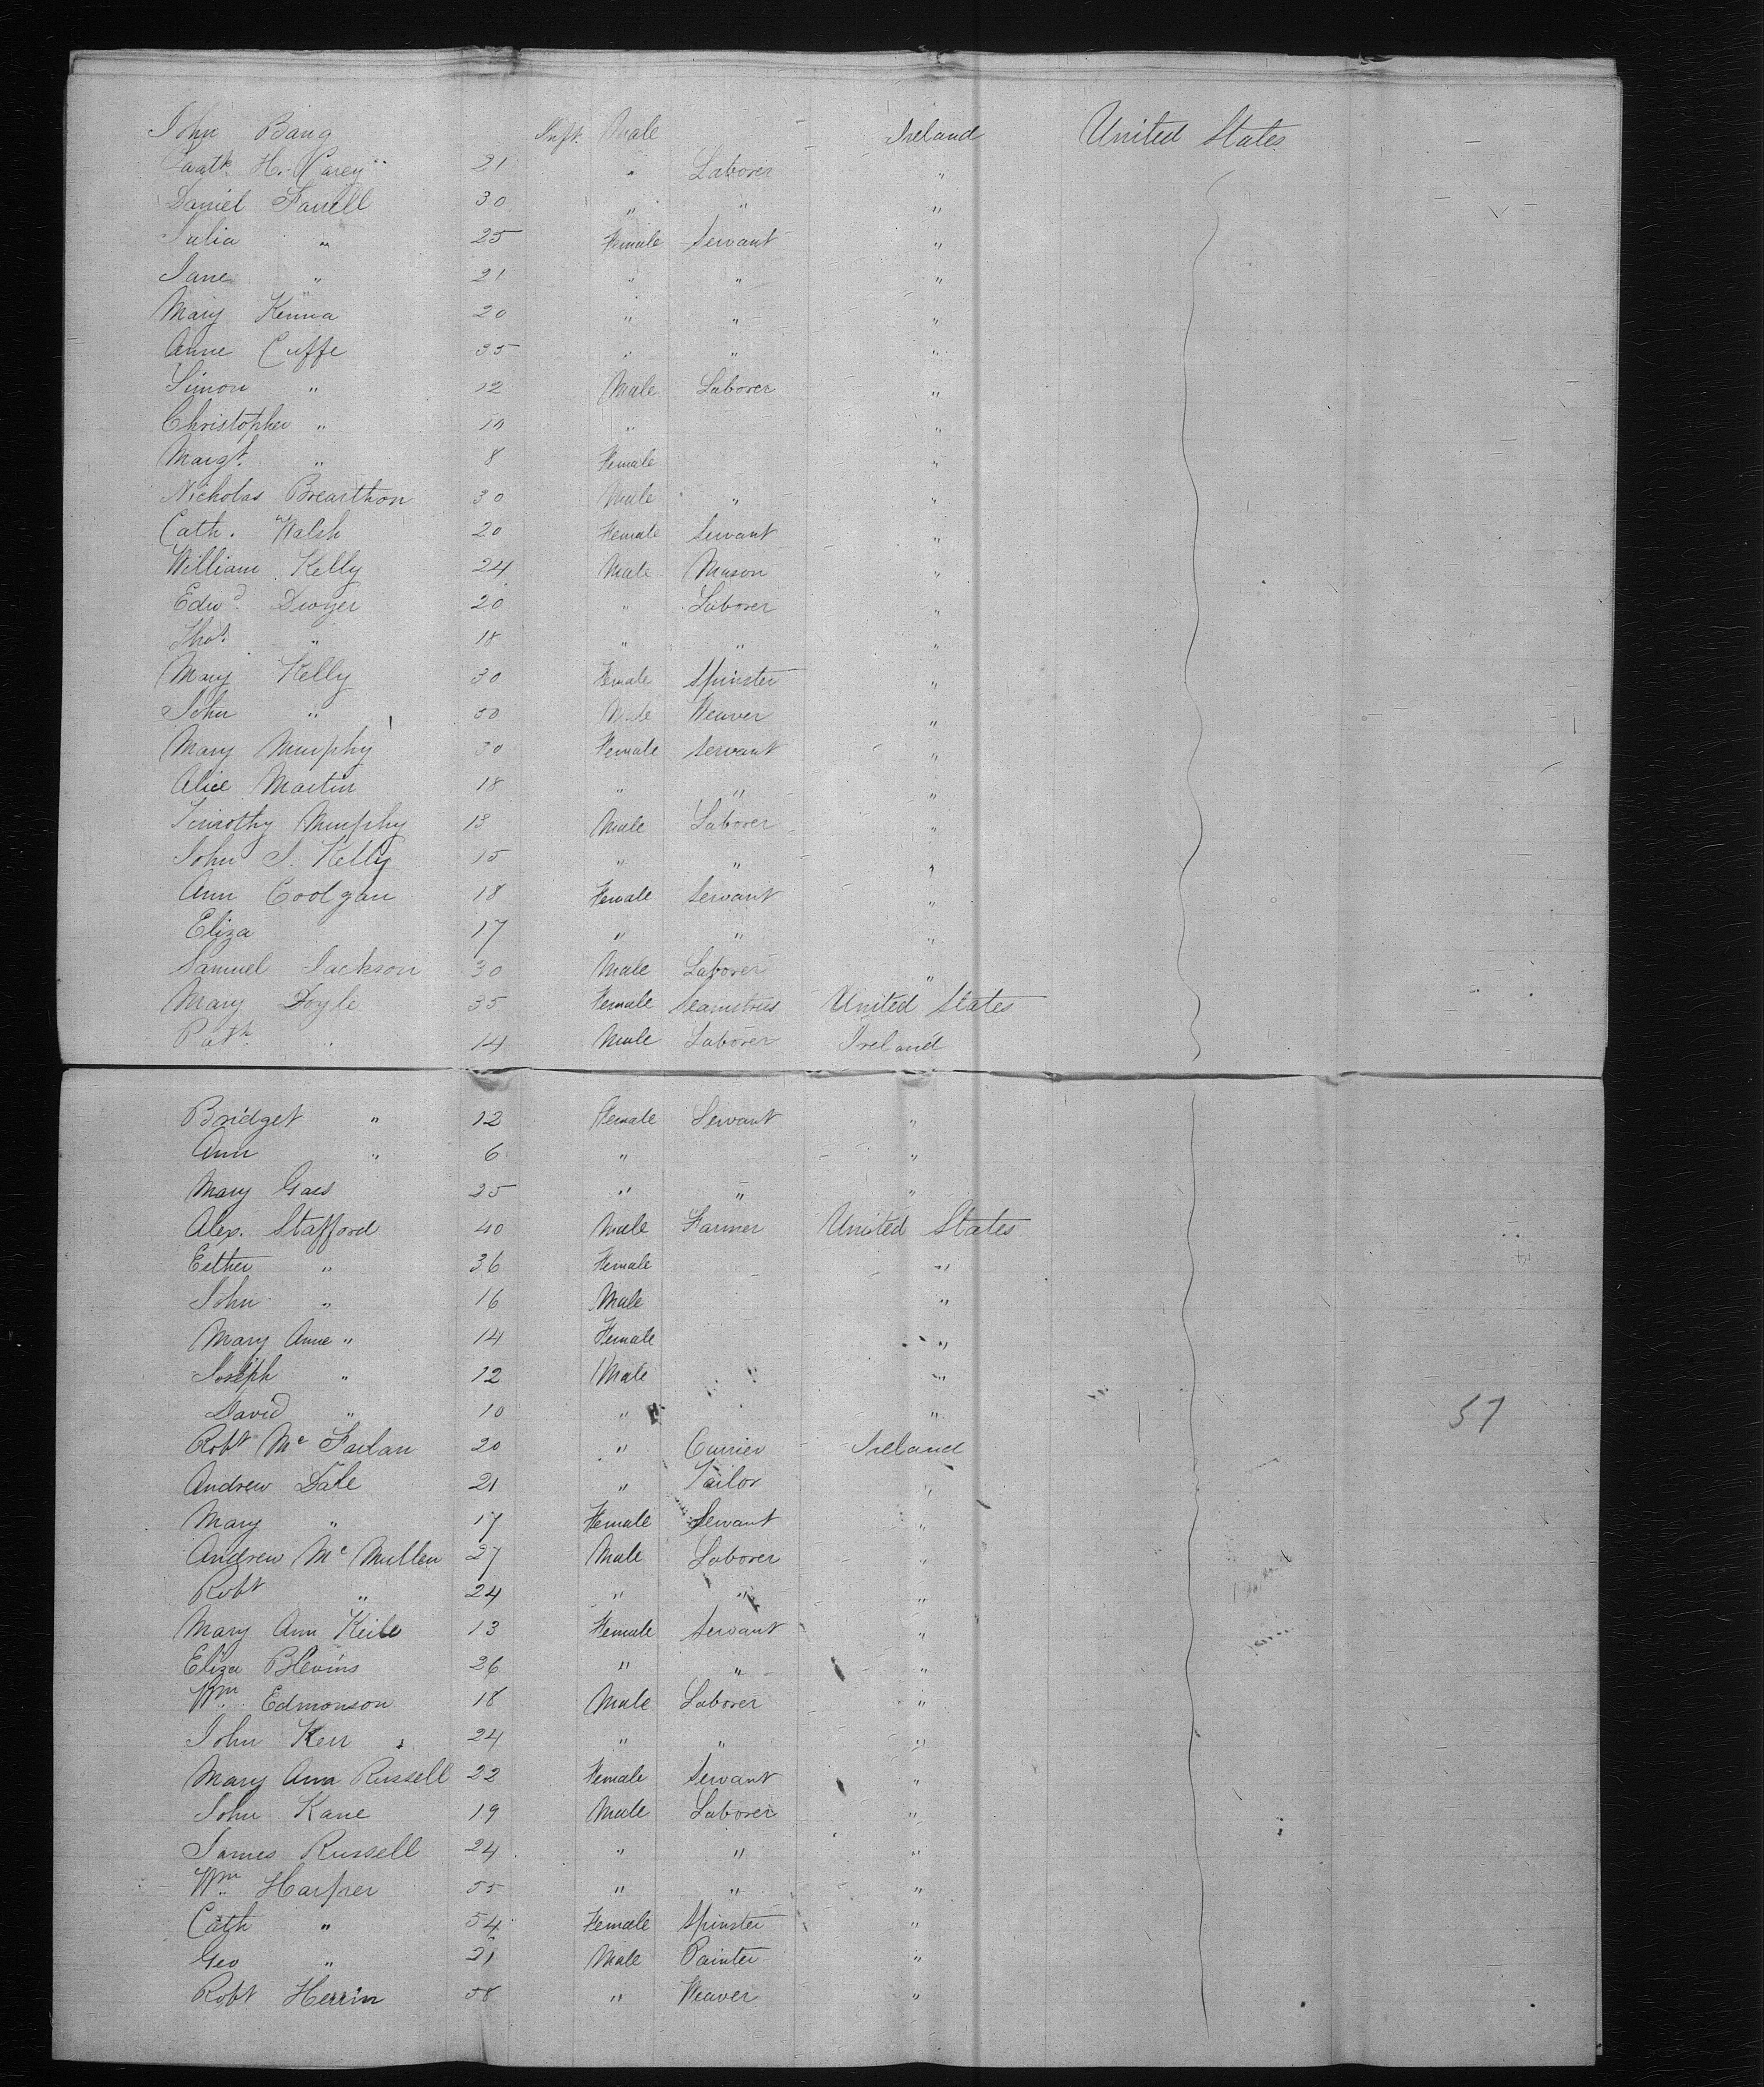 John Bang Inft. Male Ireland United States
H. Carey 21 " Laborer "
Daniel Farrell 30 " " "
Julia " 25 Female Servant "
Jane " 21 " " "
Mary Kenna 20 " " "
Anne Cuffe 35 " " "
Simon " 12 Male Laborer "
Christopher " 10 " "
Margt. " 8 Female "
Nicholas Brearthon 30 Male " "
Cath. Walsh 20 Female Servant "
William Kelly 24 Male Mason "
Edwd. Dwyer 20 " Laborer "
Thos. " 18 " " "
Mary Kelly 30 Female Spinster "
John " 50 Male Weaver "
Mary Murphy 30 Female Servant "
Alice Martin 18 " " "
Timothy Murphy 13 Male Laborer "
John J. Kelly 15 " " "
Ann Coolgan 18 Female Servant "
Eliza 17 " " "
Samuel Jackson 30 Male Laborer "
Mary Doyle 35 Female Seamstress United States
Patk. " 14 Male Laborer Ireland
Bridget " 12 Female Servant "
Ann " 6 " "
Mary Gaes 25 " " "
Alex. Stafford 40 Male Farmer United States
Esther " 36 Female "
John " 16 Male "
Mary Anne " 14 Female "
Joseph " 12 Male "
David " 10 " " 57
Robt Mc Farlan 20 " Currier Ireland
Andrew Dale 21 " Tailor "
Mary " 17 Female Servant "
Andrew Mc Mullen 27 Male Laborer "
Robt " 24 " " "
Mary Ann Keile 13 Female Servant "
Eliza Blevins 26 " " "
Wm. Edmonson 18 Male Laborer "
John Kerr 24 " " "
Mary Ann Russell 22 Female Servant "
John Kane 19 Male Laborer "
James Russell 24 " " "
Wm. Harper 55 " " "
Cath " 54 Female Spinster "
Geo " 21 Male Painter "
Robt Herrin 58 " Weaver "